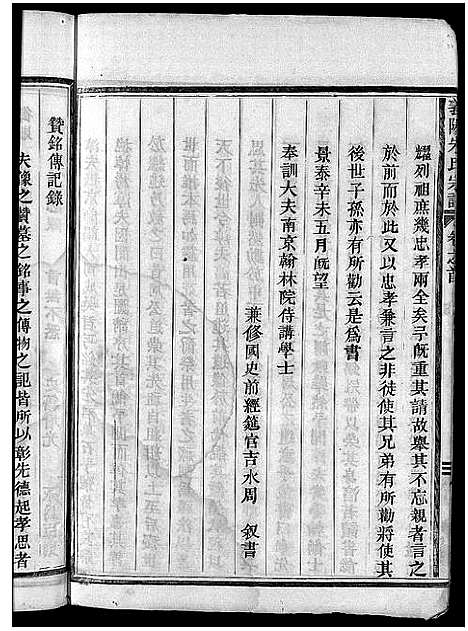 義陽朱氏宗譜 卷之首
耀列祖庶幾忠孝兩全矣予既重其請故舉其不忘親者言之
於前而於此又以忠孝兼言之非徒使其兄弟有所勸將使其
後世子孫亦有所勸云是爲書
景泰辛未五月既望
奉訓大夫南京翰林院侍講學士
兼修國史前經筵官吉水周 叙書
贊銘傳記錄
夫像之贊墓之銘事之傳物之記皆所以彰先德起孝思者